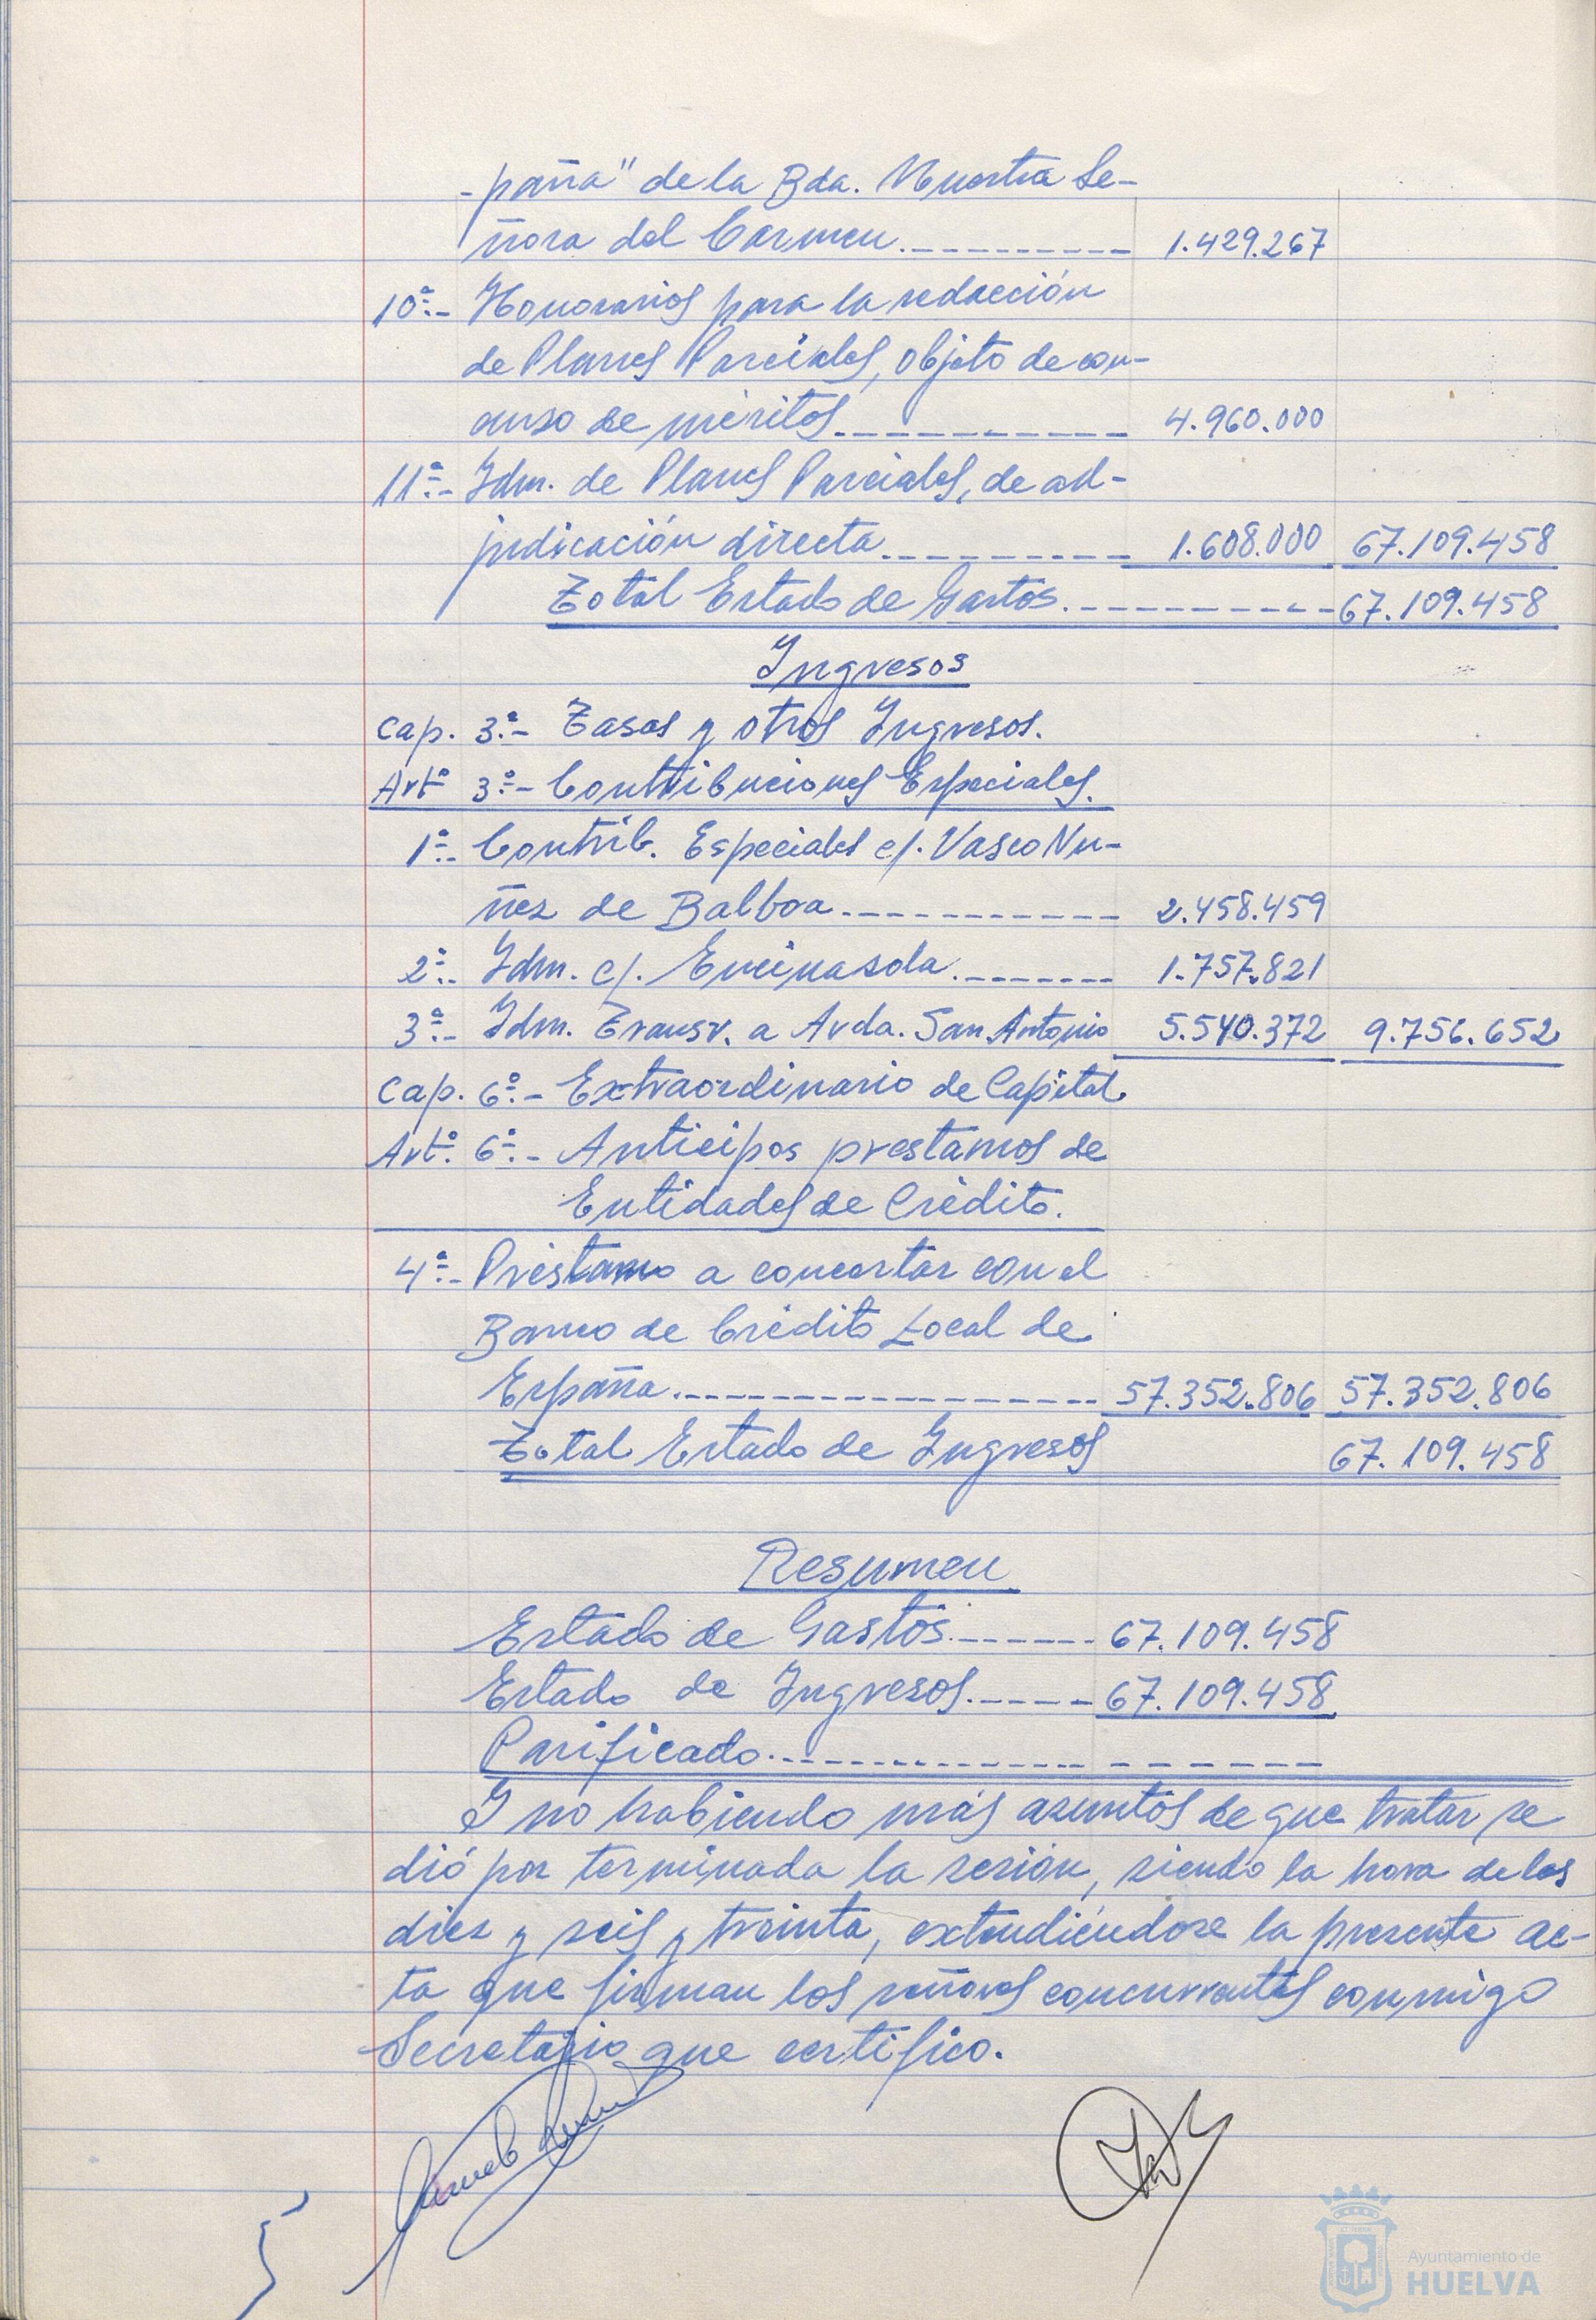 -paña" de la Bda. Nuestra Se-
ñora del Carmen.---------- 1.429.267
10ª.- Honorarios para la redacción
de Planes Parciales, objeto de con-
curso de méritos.---------- 4.960.000
11ª.- Idm. de Planes Parciales, de ad-
judicación directa.--------- 1.608.000 67.109.458
Total Estado de Gastos.---------- 67.109.458
Ingresos
Cap. 3º.- Tasas y otros Ingresos.
Artº 3º.- Contribuciones Especiales.
1ª.- Contrib. Especiales c/. Vasco Nu-
ñez de Balboa.---------- 2.458.459
2ª.- Idm. c/. Encinasola.-------- 1.757.821
3ª.- Idm. Transv. a Avda. San Antonio 5.540.372 9.756.652
Cap. 6º.- Extraordinario de Capital.
Artº. 6º.- Anticipos prestamos de
Entidades de Crédito.
4ª.- Préstamo a concertar con el
Banco de Crédito Local de
España.---------------- 57.352.806 57.352.806
Total Estado de Ingresos 67.109.458
Resumen
Estado de Gastos.------ 67.109.458
Estado de Ingresos.----- 67.109.458
Parificado.--------------------
Y no habiendo más asuntos de que tratar se
dió por terminada la sesión, siendo la hora de las
diez y seis y treinta, extendiéndose la presente ac-
ta que firman los señores concurrentes conmigo
Secretario que certifico.
Ayuntamiento de
HUELVA